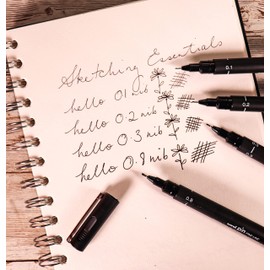 Sketching Essentials
hello 0.1 nib
hello 0.2 nib
hello 0.3 nib
hello 0.8 nib
0.1
0.8
uni pin